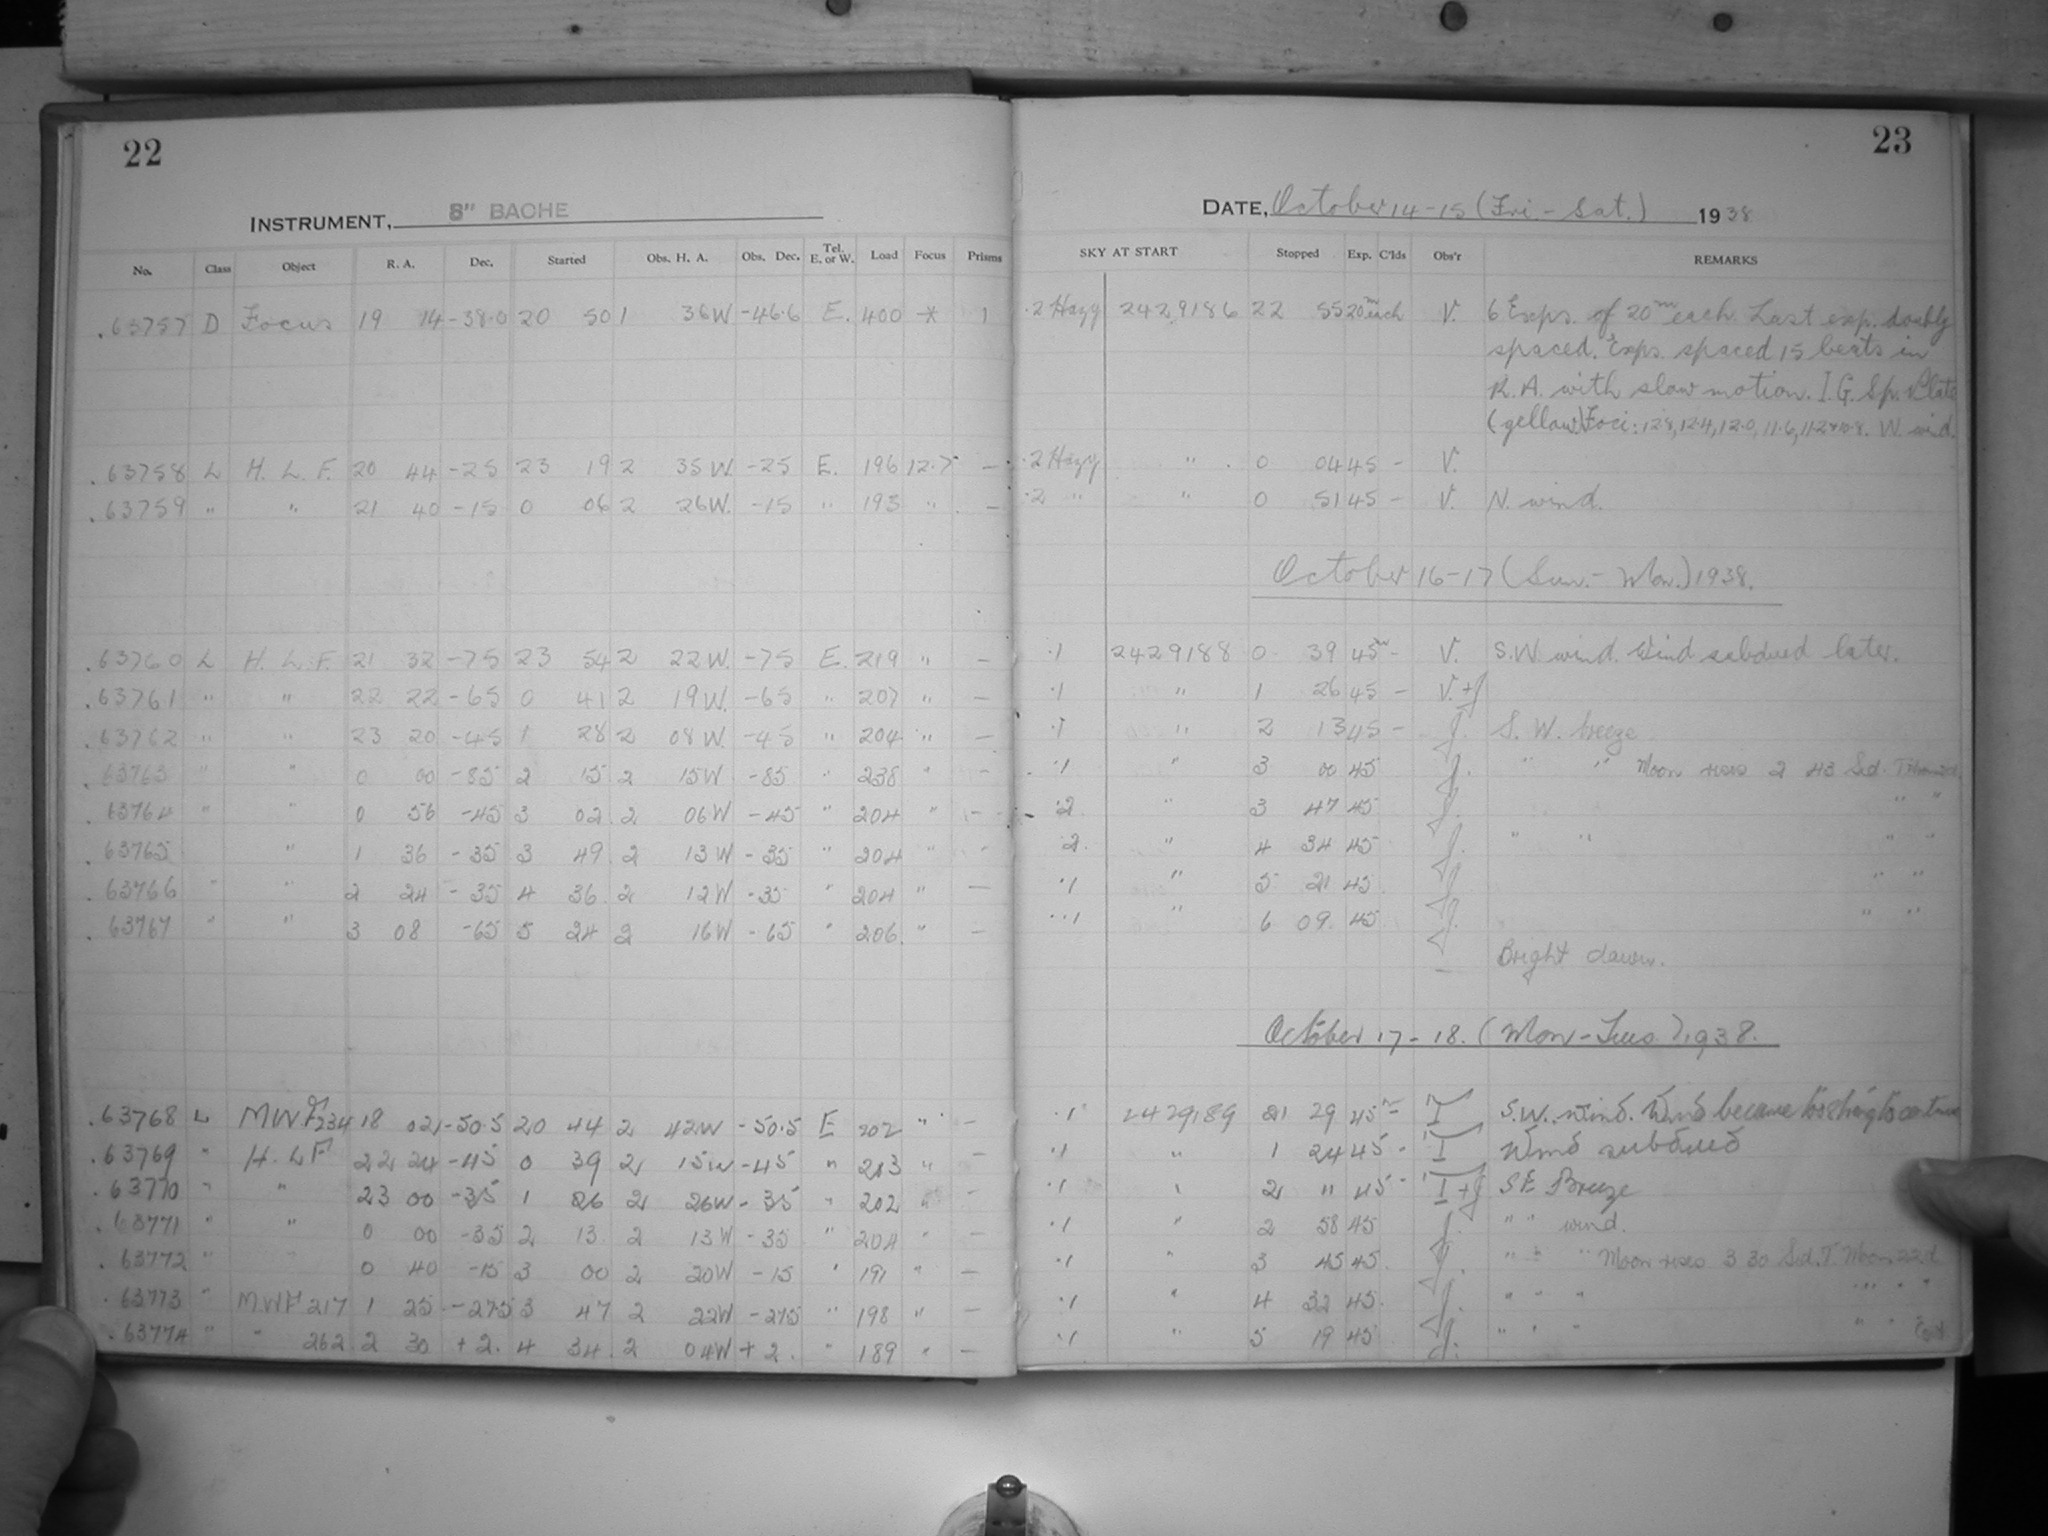 22
INSTRUMENT, 8" BACHE
No. Class Object R. A. Dec. Started Obs. H. A. Obs. Dec. Tel. E. or W. Load Focus Prisms
.63757 D Focus 19 14 -38.0 20 50 1 36W -46.6 E. 400 * 1
.63758 L H. L. F. 20 44 -25 23 19 2 35W -25 E. 196 12.7 -
.63759 " " 21 40 -15 0 06 2 26W. -15 " 193 " -
.63760 L H. L. F. 21 32 -75 23 54 2 22W. -75 E. 219 " -
.63761 " " 22 22 -65 0 41 2 19W. -65 " 207 " -
.63762 " " 23 20 -45 1 28 2 08W. -45 " 204 " -
.63763 " " 0 00 -85 2 15 2 15W -85 " 238 " -
.63764 " " 0 56 -45 3 02 2 06W -45 " 204 " -
.63765 " 1 36 -35 3 49 2 13W -35 " 204 " "
.63766 " " 2 24 -35 4 36 2 12W -35 " 204 " -
.63767 " " 3 08 -65 5 24 2 16W -65 " 206 " -
.63768 L MWF 234 18 02 -50.5 20 44 2 42W -50.5 E 202 " -
.63769 " H. L F 22 24 -45 0 39 2 15W -45 " 203 " -
.63770 " " 23 00 -35 1 26 2 26W -35 " 202 " -
.63771 " " 0 00 -35 2 13 2 13W -35 " 204 " -
.63772 " " 0 40 -15 3 00 2 20W -15 " 191 " -
.63773 " MWF 217 1 25 -27.5 3 47 2 22W -27.5 " 198 " -
.63774 " " 262 2 30 +2. 4 34 2 04W +2. " 189 " -
23
DATE, October 14-15 (Fri.-Sat.) 1938
SKY AT START Stopped Exp. C'lds Obs'r REMARKS
.2 Hazy 2429186 22 55 20m each V. 6 Exps. of 20m each. Last exp. doubly
spaced. Exps. spaced 15 beats in
R. A. with slow motion. I. G. Sp. Plate
(yellow) Foci: 12.8, 12.4, 12.0, 11.6, 11.2 + 10.8. W. wind.
.2 Hazy " 0 04 45 - V.
.2 " " 0 51 45 - V. N. wind.
October 16-17 (Sun.-Mon.) 1938.
.1 2429188 0 39 45m - V. S.W. wind. Wind subdued later.
.1 " 1 26 45 - V.+J
.1 " 2 13 45 - J. S. W. breeze
.1 " 3 00 45 J. " " Moon rises 2 43 Sid. T.
.2 " 3 47 45 J. " "
.2 " 4 34 45 J. " " " "
.1 " 5 21 45 J. " "
.1 " 6 09 45 J. " "
Bright dawn.
October 17-18. (Mon-Tues.) 1938.
.1 2429189 21 29 45m - T S.W. wind. Wind became too strong to continue
.1 " 1 24 45 - T Wind subdued
.1 " 2 11 45 - T+J S.E. Breeze
.1 " 2 58 45 J. " " wind.
.1 " 3 45 45 J. " " " Moon rises 3 30 Sid. T. Moon 22d
.1 " 4 32 45 J. " " " " " "
.1 " 5 19 45 J. " " " " "